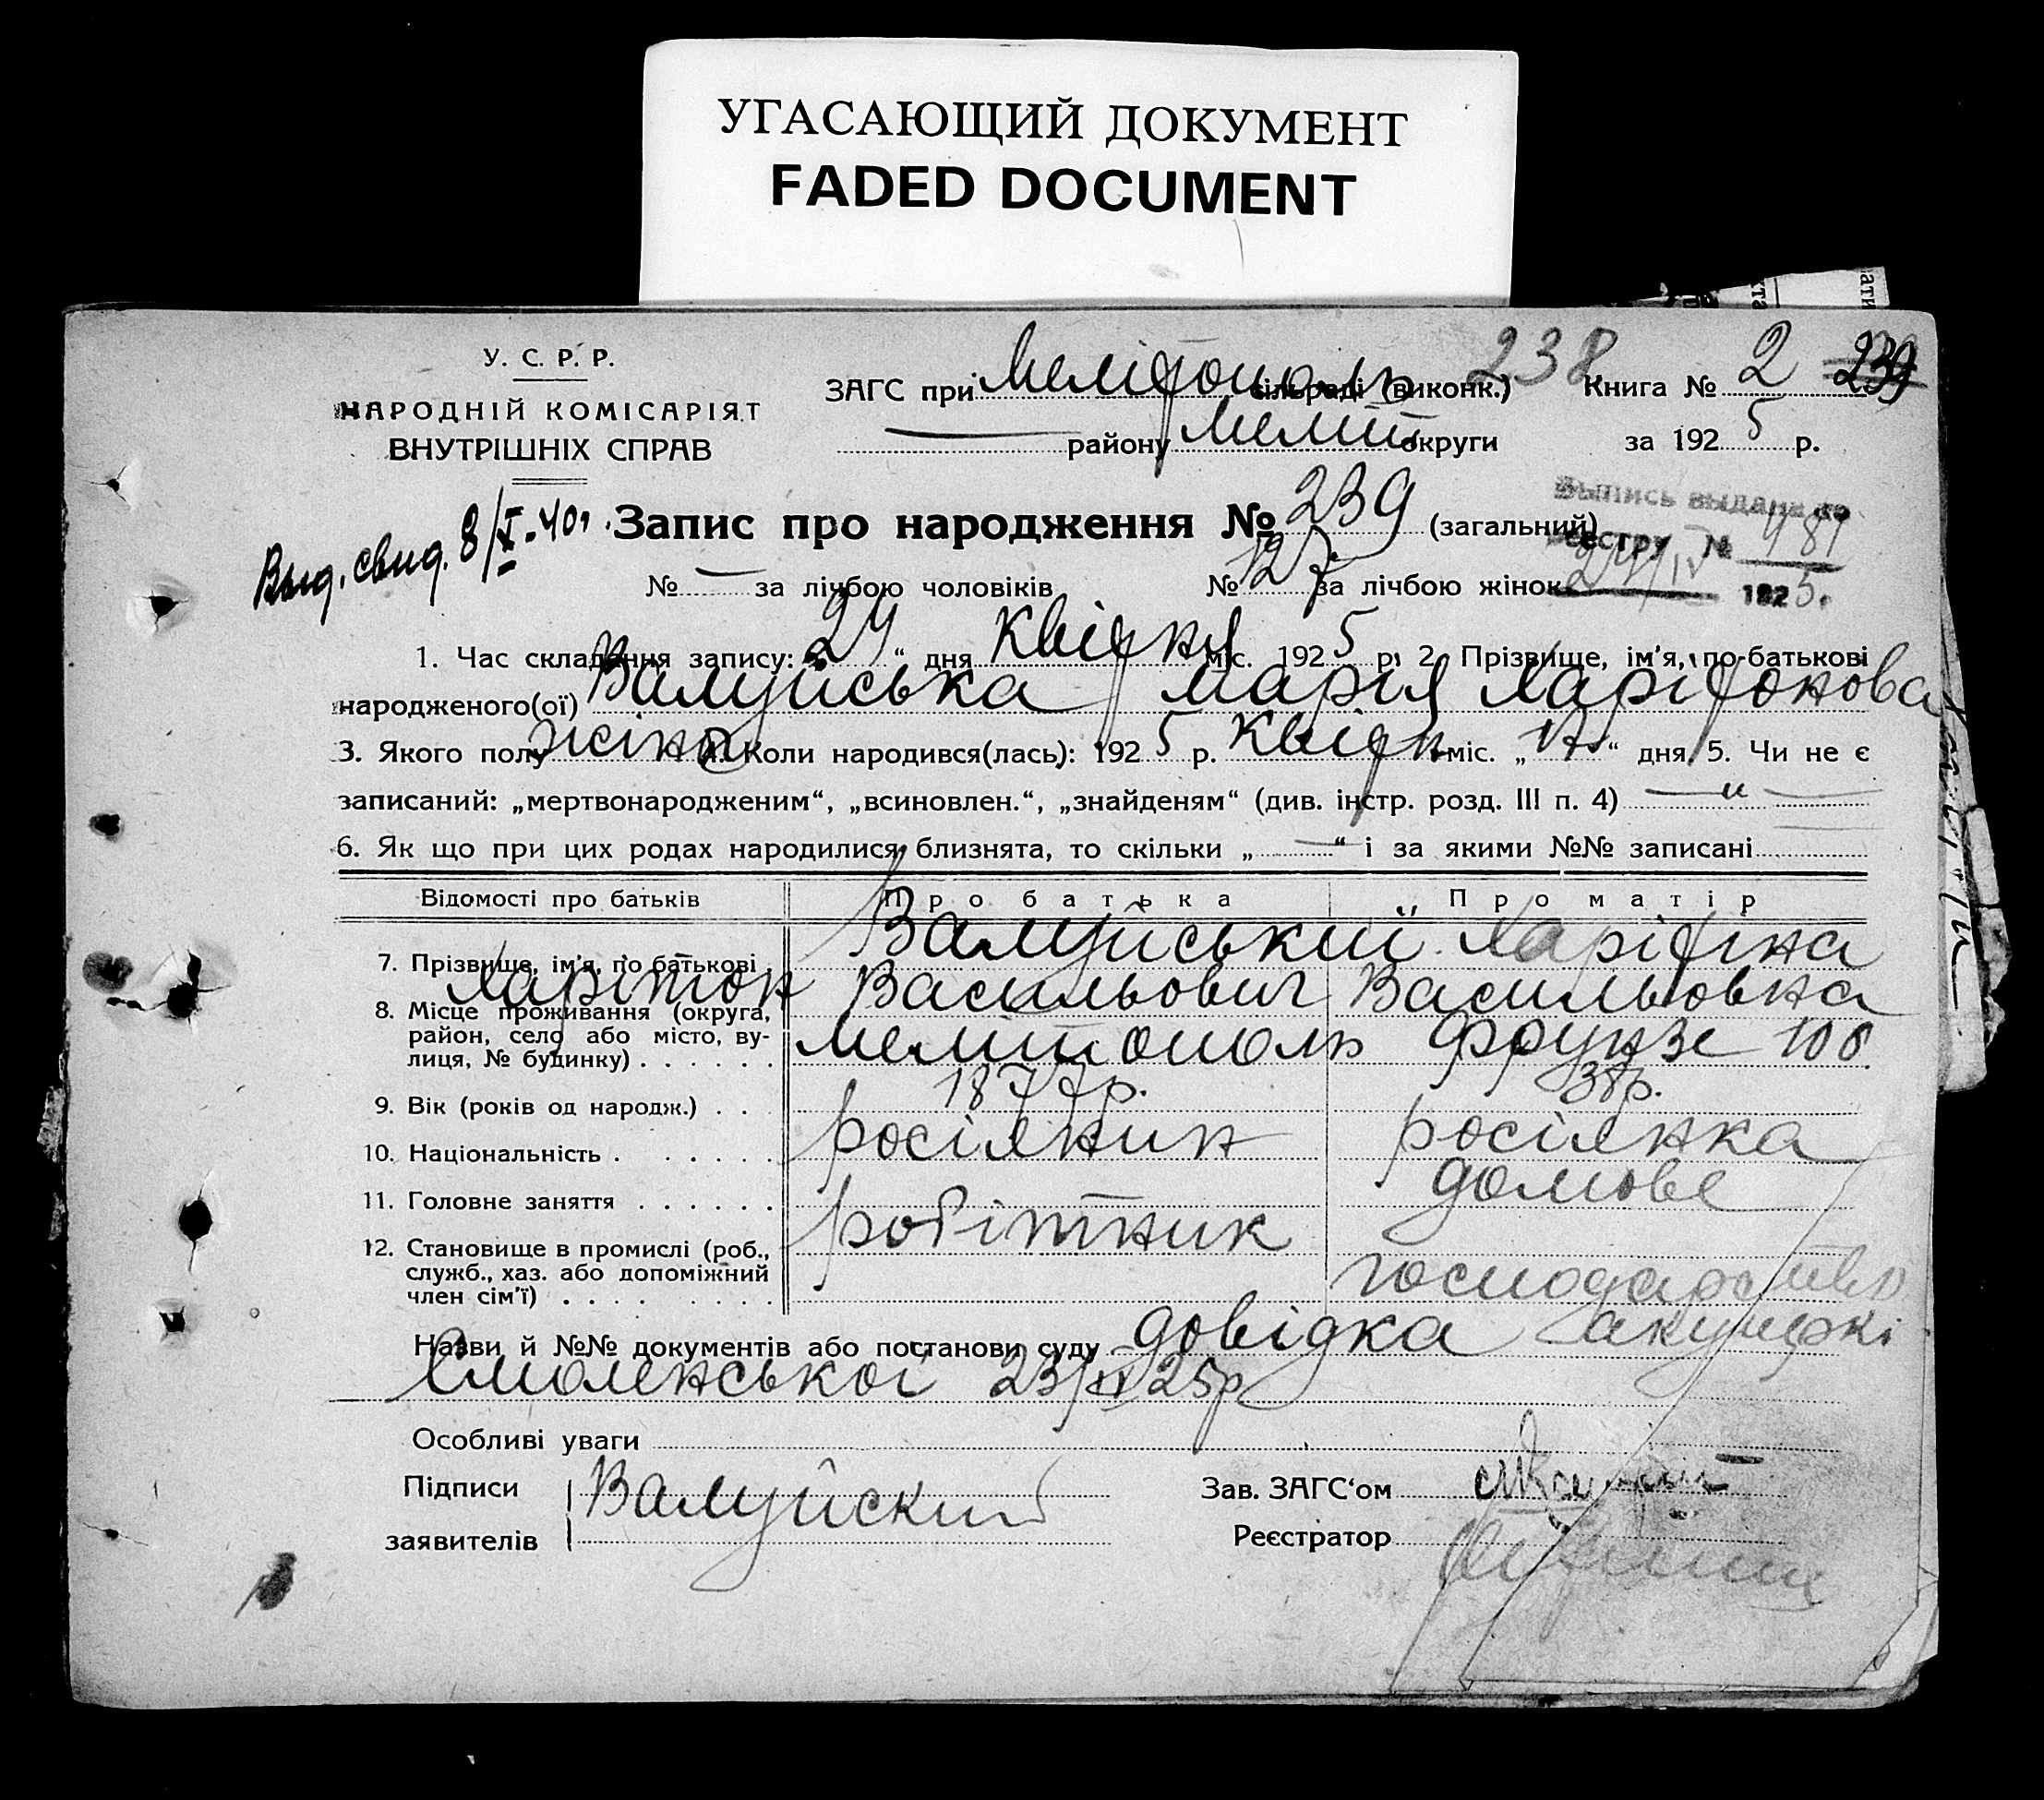 УГАСАЮЩИЙ ДОКУМЕНТ
FADED DOCUMENT
У. С. Р. Р.
НАРОДНІЙ КОМІСАРІЯТ
ВНУТРІШНІХ СПРАВ
ЗАГС при Мелітополь сільраді (виконк.) 238 Книга № 2 239
— району Меліт округи за 1925 р.
Выд. свид. 8/X-40г.
Запис про народження № 239 (загальний)
Выпись выдана по
реестру № 481
24/IV 1925.
№ — за лічбою чоловіків № 127 за лічбою жінок
1. Час складання запису: 24 “ дня Квітня міс. 1925 р. 2. Прізвище, ім'я, по-батькові
народженого(ої) Валуйська Марія Харітонова
3. Якого полу жіно 4. Коли народився(лась): 1925 р. Квітн міс. „ “ дня. 5. Чи не є
записаний: „мертвонародженим“, „всиновлен.“, „знайденям“ (див. інстр. розд. III п. 4) — „ —
6. Як що при цих родах народилися близнята, то скільки „ — “ і за якими №№ записані
Відомості про батьків Про батька Про матір
7. Прізвище, ім'я, по батькові Валуйський „ Харітіна
Харітон Васильович Васильовна
8. Місце проживання (округа, район, село або місто, ву-
лиця, № будинку) Мелітополь Фрунзе 106
9. Вік (років од народж.) 1877р. 38р.
10. Національність росіянин росіянка
11. Головне заняття домове
12. Становище в промислі (роб., робітник
служб., хаз. або допоміжний
член сім'ї) господарство
Назви й №№ документів або постанови суду довідка акушерки
Смоленської 23/IV 25р
Особливі уваги
Підписи Валуйский Зав. ЗАГС‘ом
заявителів Реєстратор